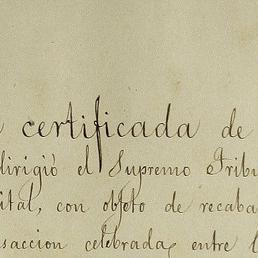 certificada de
dirigió el Supremo Tribu
ital, con objeto de recaba
saccion celebrada, entre l